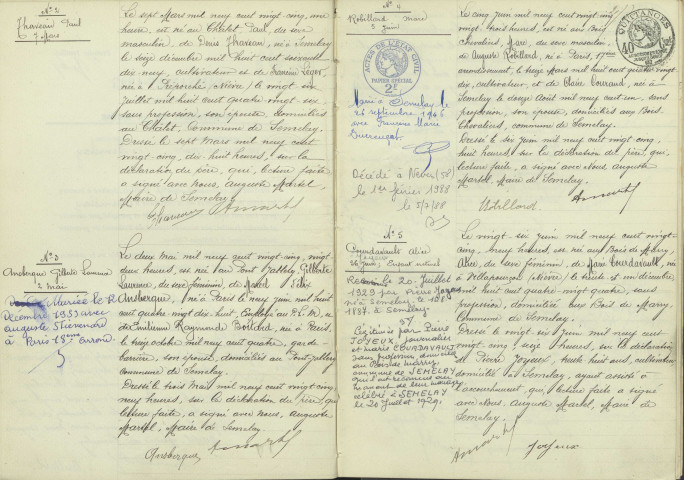 N° 2
Thareau Paul
7 Mars
Le sept Mars mil neuf cent vingt-cinq, une
heure, est né au Châlet, Paul, du sexe
masculin, de Denis Thareau, né à Semelay
le seize décembre mil huit cent soixante
dix neuf, cultivateur et de Léger,
née à (Nièvre) le vingt six
juillet mil huit cent quatre vingt six
sans profession, son épouse, domiciliés
au Châlet, Commune de Semelay.
Dressé le sept Mars mil neuf cent
vingt cinq, dix huit heures, sur la
déclaration du père, qui, lecture faite
a signé avec Nous, Auguste Martel,
Maire de Semelay.
N° 3
Ansbergue Gilberte Laurence
2 mai
Mariée le 12
Décembre 1953 avec
Auguste
à Paris 15eme arrond.
Le deux Mai mil neuf cent vingt cinq,
deux heures, est née au Pont Gatblly, Gilberte
Laurence, du sexe féminin, de Marcel Félix
Ansbergue, né à Paris le neuf juin mil huit
cent quatre vingt dix huit, Employé au P.L.M., et
de Emilienne Raymonde Boitard, née à Paris,
le treize octobre mil neuf cent quatre, garde-
barrière, son épouse, domiciliés au Pont-Gatblly
Commune de Semelay.
Dressé le trois Mai mil neuf cent vingt cinq
neuf heures, sur la déclaration du père, qui
lecture faite, a signé avec Nous, Auguste
Martel, Maire de Semelay.
Ansbergue
N° 4
Robillard Marc
5 juin
ACTES DE L'ETAT CIVIL
PAPIER SPÉCIAL
2F
Marié à Semelay le
26 septembre 1946
avec Françoise Marie
Décédé à Nevers (58)
le 1er février 1988
le 5/2/88
QUITTANCES
40
Le cinq juin mil neuf cent vingt cinq
vingt trois heures, est né aux Bois
Chevaliers, Marc, du sexe masculin
de Auguste Robillard, né à Paris, 17ème
arrondissement, le treize Mars mil huit cent quatre vingt-
dix, cultivateur, et de Claire Courault, née à
Semelay le douze Août mil neuf cent un, sans
profession, son épouse, domiciliés aux Bois
Chevaliers, commune de Semelay.
Dressé le six juin mil neuf cent vingt cinq,
huit heures, sur la déclaration du père, qui,
lecture faite, a signé avec Nous, Auguste
Martel, Maire de Semelay.
Robillard
N° 5
Courdavault Alice
Joyeux
26 juin, Enfant naturel
le 20 juillet
1929 par Pierre Joyeux
né à Semelay le
1887 à Semelay
Légitimée par Pierre
JOYEUX, journalier
et Marie COURDAVAULT
sans profession, domiciliés
au Bois de Marry
commune de SEMELAY
qui l'ont reconnue au
moment de leur mariage
célébré à SEMELAY
le 20 juillet 1929.
Le vingt six juin mil neuf cent vingt-
cinq, neuf heures, est née au Bois de Marry,
Alice, du sexe féminin, de Marie Courdavault, née
à Villapourçon (Nièvre), le trente et un décembre
mil huit cent quatre vingt quatre, sans
profession, domiciliée aux Bois de Marry
Commune de Semelay.
Dressé le vingt six juin mil neuf cent
vingt cinq, seize heures, sur la déclaration
de Pierre Joyeux, trente huit ans, cultivateur
domicilié à Semelay, ayant assisté à
l'accouchement, qui, lecture faite a signé
avec Nous, Auguste Martel, Maire de
Semelay.
Joyeux